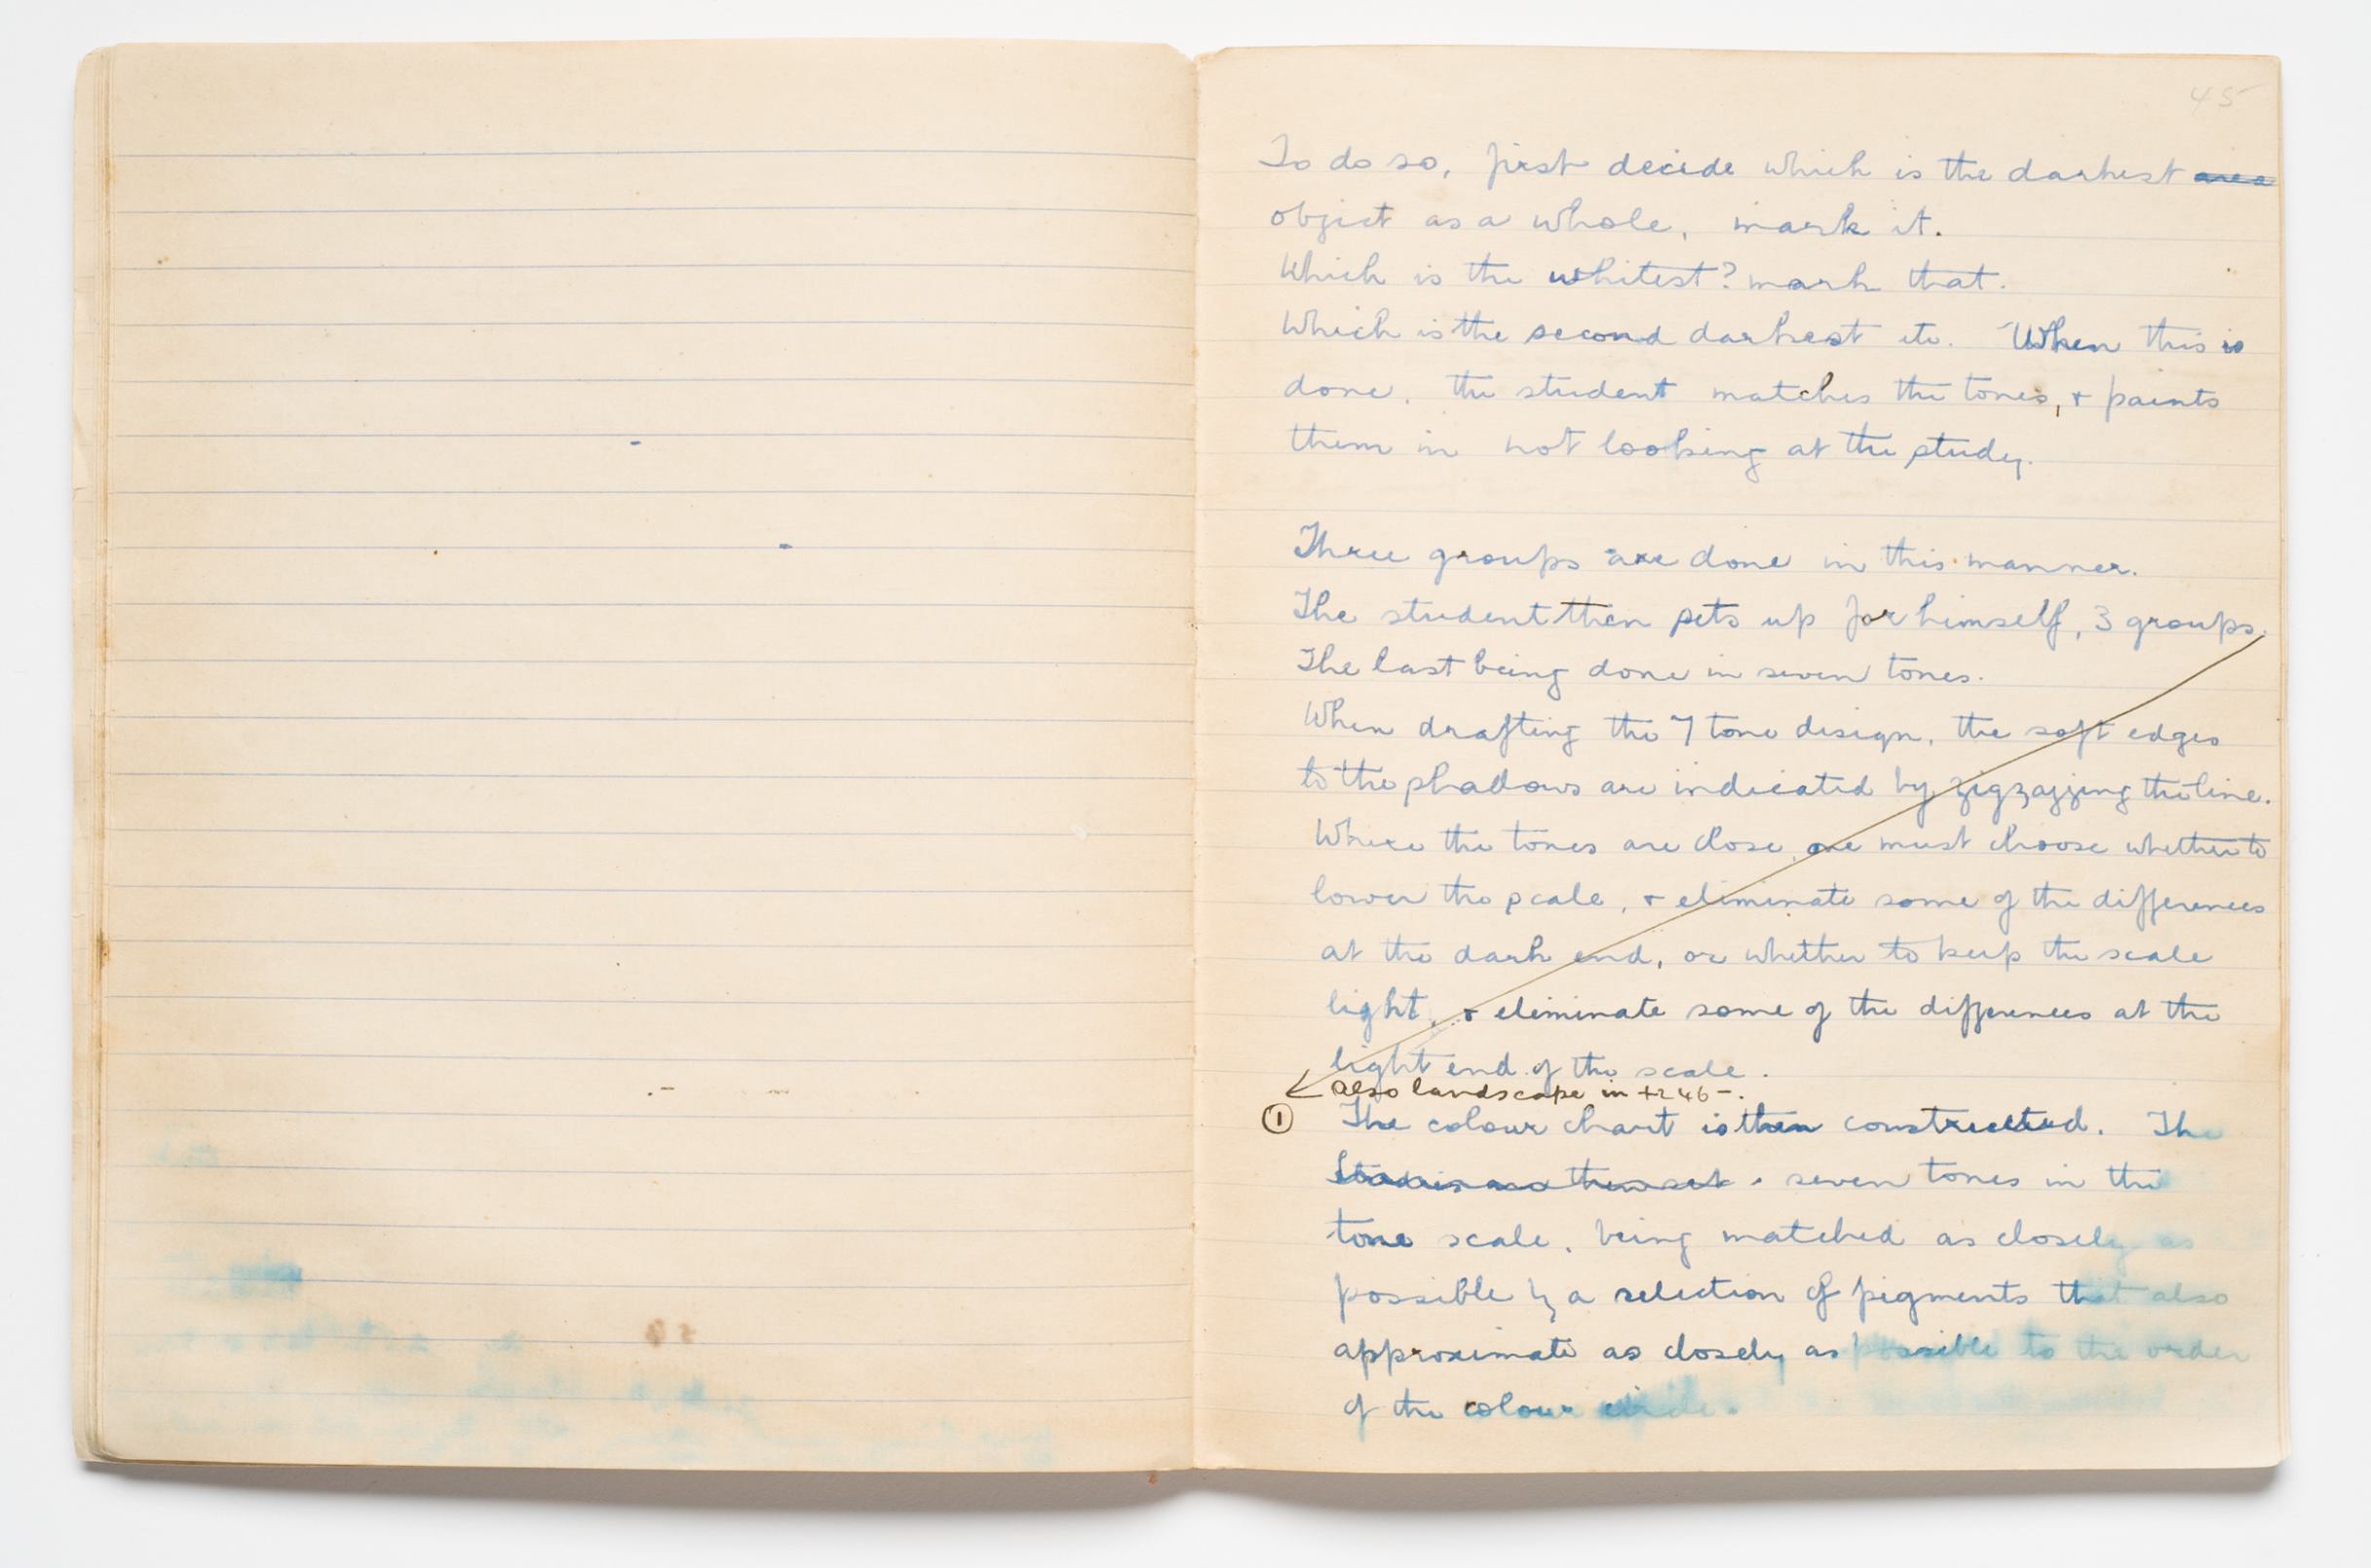 45
To do so, first decide which is the darkest area
object as a whole, mark it.
Which is the whitest? mark that.
Which is the second darkest etc. When this is
done, the student matches the tones, + paints
them in not looking at the study.
Three groups are done in this manner.
The student then sets up for himself, 3 groups.
The last being done in seven tones.
When drafting the 7 tone design, the soft edges
to the shadows are indicated by zigzagging the line.
Where the tones are close one must choose whether to
lower the scale, + eliminate some of the differences
at the dark end, or whether to keep the scale
light, + eliminate some of the differences at the
light end of the scale.
also landscape in
① The colour chart is then constructed. The
seven tones in the
tone scale, being matched as closely as
possible by a selection of pigments that also
approximate as closely as possible to the order
of the colour circle.